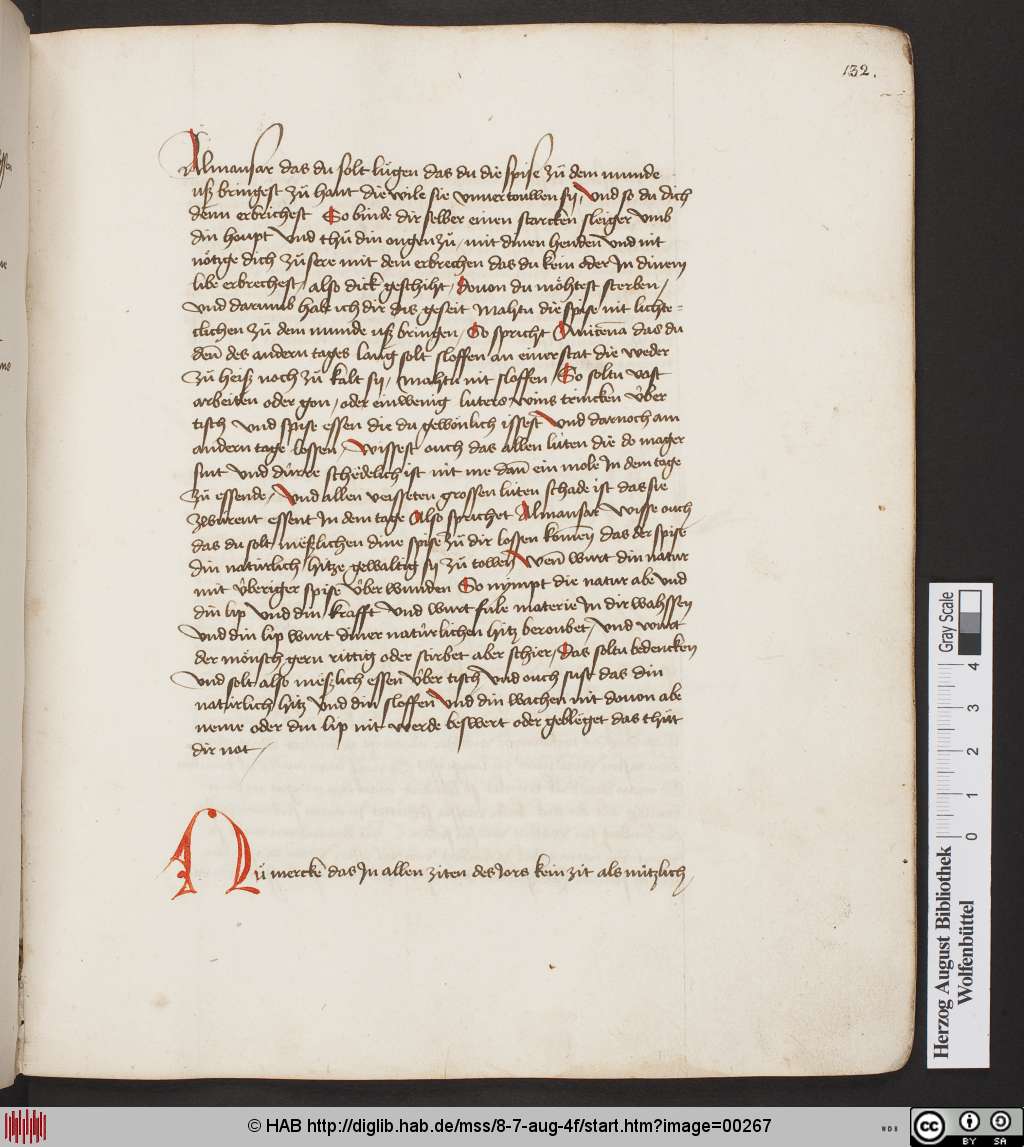 132.
Almansar das du solt lůgen das du die spise zů dem munde
usz bringest zů hant die wile sie unvertouwen sy, Und so du dich
denn erbrichest So binde dir selber einen starcken sleiger umb
din houpt und thů din ougen zů, mit dinen henden und nit
nötige dich zů sere mit dem erbrechen das du kein oder In dinem
libe erbrechest, also dick geschiht, Douon du möhtest sterben,
und darumb hab ich dir dis geseit Mahtu die spise nit lichte-
clichen zů dem munde usz bringen, So spricht Auicena das du
den des andern tages lang solt sloffen an einer stat die weder
zů heisz noch zů kalt sy, Mahtu nit sloffen, So soltu vast
arbeiten oder gon, oder ein wenig luters wins trincken über
tisch und spise essen die du gewönlich issest Und darnoch am
andern tage lossen, Wissest ouch das allen lüten die do mager
sint und dürre schedelich ist nit me dan ein mole In dem tage
zů essende, Und allen veisseten grossen lüten schade ist das sie
zwürent essent In dem tage Also sprichet Almansar Wisse ouch
das du solt meszlichen dine spise zů dir lossen komen das der spise
din natürlich hitze gewaltig sy zů towen Wen wurt din natur
mit überiger spise über wunden So nympt die natur abe und
din lip und din krafft und wurt fule materie In dir wahssen
und din lip wurt diner natürlichen hitz beroubet, und wurt
der mönsch gern rittig oder stirbet aber schier, Das soltu bedencken
und solt also meszlich essen über tisch und ouch sust das din
natürlich hitz und din sloffen Und din wachen nit douon abe
neme oder din lip nit werde beswert oder geblöget das thůt
dir not,
Nů mercke das In allen ziten des Jors kein zit als nützlich,
Gray Scale
0 1 2 3 4
Herzog August Bibliothek
Wolfenbüttel
© HAB http://diglib.hab.de/mss/8-7-aug-4f/start.htm?image=00267
WDB
cc BY SA